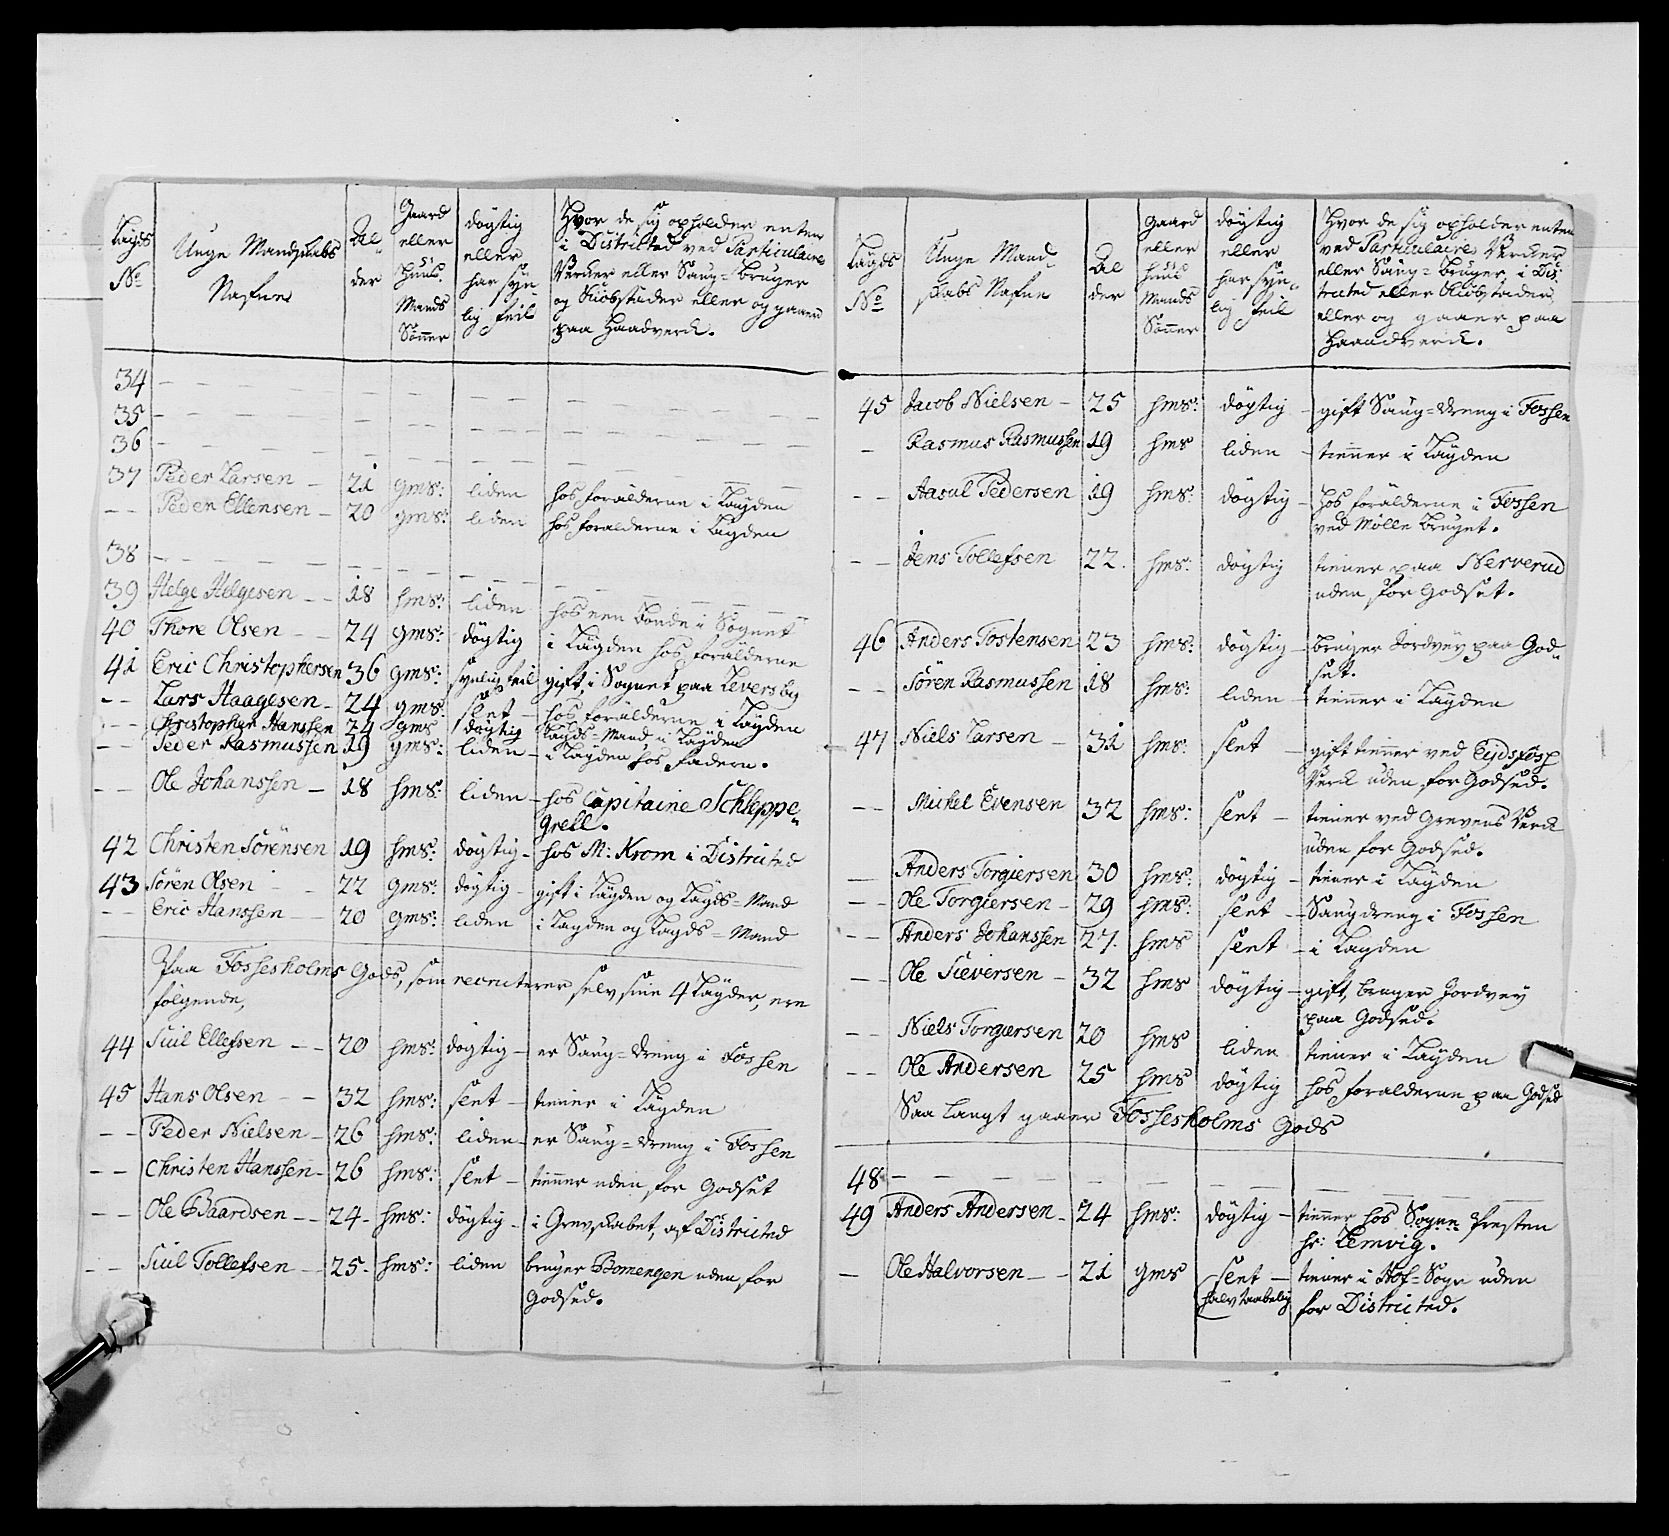 Lägds No | Unge Mandskabs Nafne | Al-der | Gaard eller Huus-Mands Sønner | døgtig eller har syn-lig feil | Hvor de sig opholder enten i Districted ved Particulaire Verker eller Saug-Bruger og Kiøbstæder eller og gaaer paa Haandverk.
34 – – – – –
35 – – – – –
36 – – – – –
37 Peder Larsen – 21 gms: liden hos forälderne i Lägden
– – Peder Ellensen – 20 gms: liden hos forälderne i Lägden
38 – – – – –
39 Helge Helgesen – – 18 hms: liden hos een Bonde i Sognet
40 Thore Olsen – – 24 gms: døgtig i Lägden hos forälderne
41 Eric Christophersen 36 gms: synlig feil gift, i Sognet paa Leversby
– – Lars Haagesen – 24 gms: slet – hos forälderne i Lägden
– – Christopher Hanssen 24 gms døgtig Lägds-Mand i Lägden
– – Peder Rasmussen 19 gms: liden – i Lägden hos faderen.
– – Ole Johanssen – 18 hms: liden – hos Capitaine Schleppe-
Grell.
42 Christen Sörensen 19 hms: døgtig – hos M: Krom i Districted
43 Sören Olsen – – 22 gms: døgtig – gift i Lägden og Lägds-Mand
– – Eric Hanssen – – 20 gms: liden i Lägden og Lägds-Mand
Paa Fossesholms Gods, som recruterer selv sine 4 Lägder, ere
følgende,
44 Siul Ellefsen – – 20 hms: døgtig – er Saug-dreng i Fossen
45 Hans Olsen – – 32 hms: slet – tiener i Lägden
– – Peder Nielsen – 26 hms: liden – er Saug-dreng i Fossen
– – Christen Hanssen – 26 hms: slet – tienner uden for Godset
– – Ole Baardsen – – 24 – hms: døgtig – i Grevskabet, af Districted
– – Siul Tollefsen – – 25 – hms: liden bruger Bomengen uden for
Godsed.
Lägds No | Unge Mand-skabs Nafne | Al-der | Gaard eller Huus Mands Sønner | døgtig eller har syn-lig feil | Hvor de sig opholder enten ved Particulaire Verker eller Saug-Bruger i Dis-tricted eller Kiøbstæder eller og gaaer paa Haandverk.
45 Jacob Nielsen – 25 hms: døgtig – gift Saug-dreng i Fossen
– Rasmus Rasmussen 19 hms liden – tienner i Lägden
– – Aasul Pedersen 19 hms: døgtig – hos forälderne i Fossen
ved Mølle Bruget.
– – Jens Tollefsen 22. hms: døgtig tiener paa Nerverud
uden for Godset.
46 Anders Tostensen 23 hms: døgtig – bruger Jordvey paa God-
set.
– – Sören Rasmussen 18 hms: liden – tienner i Lägden
47 Niels Larsen – 31 hms: slet – gift tienner ved Eydsfoss
Verk uden for Godsed.
– – Mickel Evensen 32 hms: slet – tiener ved Grevens Verk
uden for Godsed.
– Anders Torgiersen 30 hms: døgtig – tiener i Lägden
– – Ole Torgiersen – 29 hms: slet – Saugdreng i Fossen
– – Anders Johanssen 27. hms slet – i Lägden
– – Ole Sieversen – 32 hms døgtig – gift, bruger Jordvey
paa Godsed.
– – Niels Torgiersen 20 hms liden tiener i Lägden
– – Ole Andersen 25 hms døgtig hos forälderne paa Godsed
Saa langt gaaer Fossesholms Gods
48 – – – – –
49 Anders Andersen – 24 hms: døgtig – tienner hos Sogne Presten
Hr: Lemvig.
– Ole Halvorsen – – 21 gms slet – tiener i Hof-Sogn uden
halv taabelig for Districted.